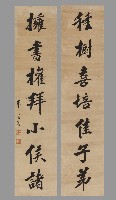 種樹喜培佳子弟
擁書權拜小侯諸